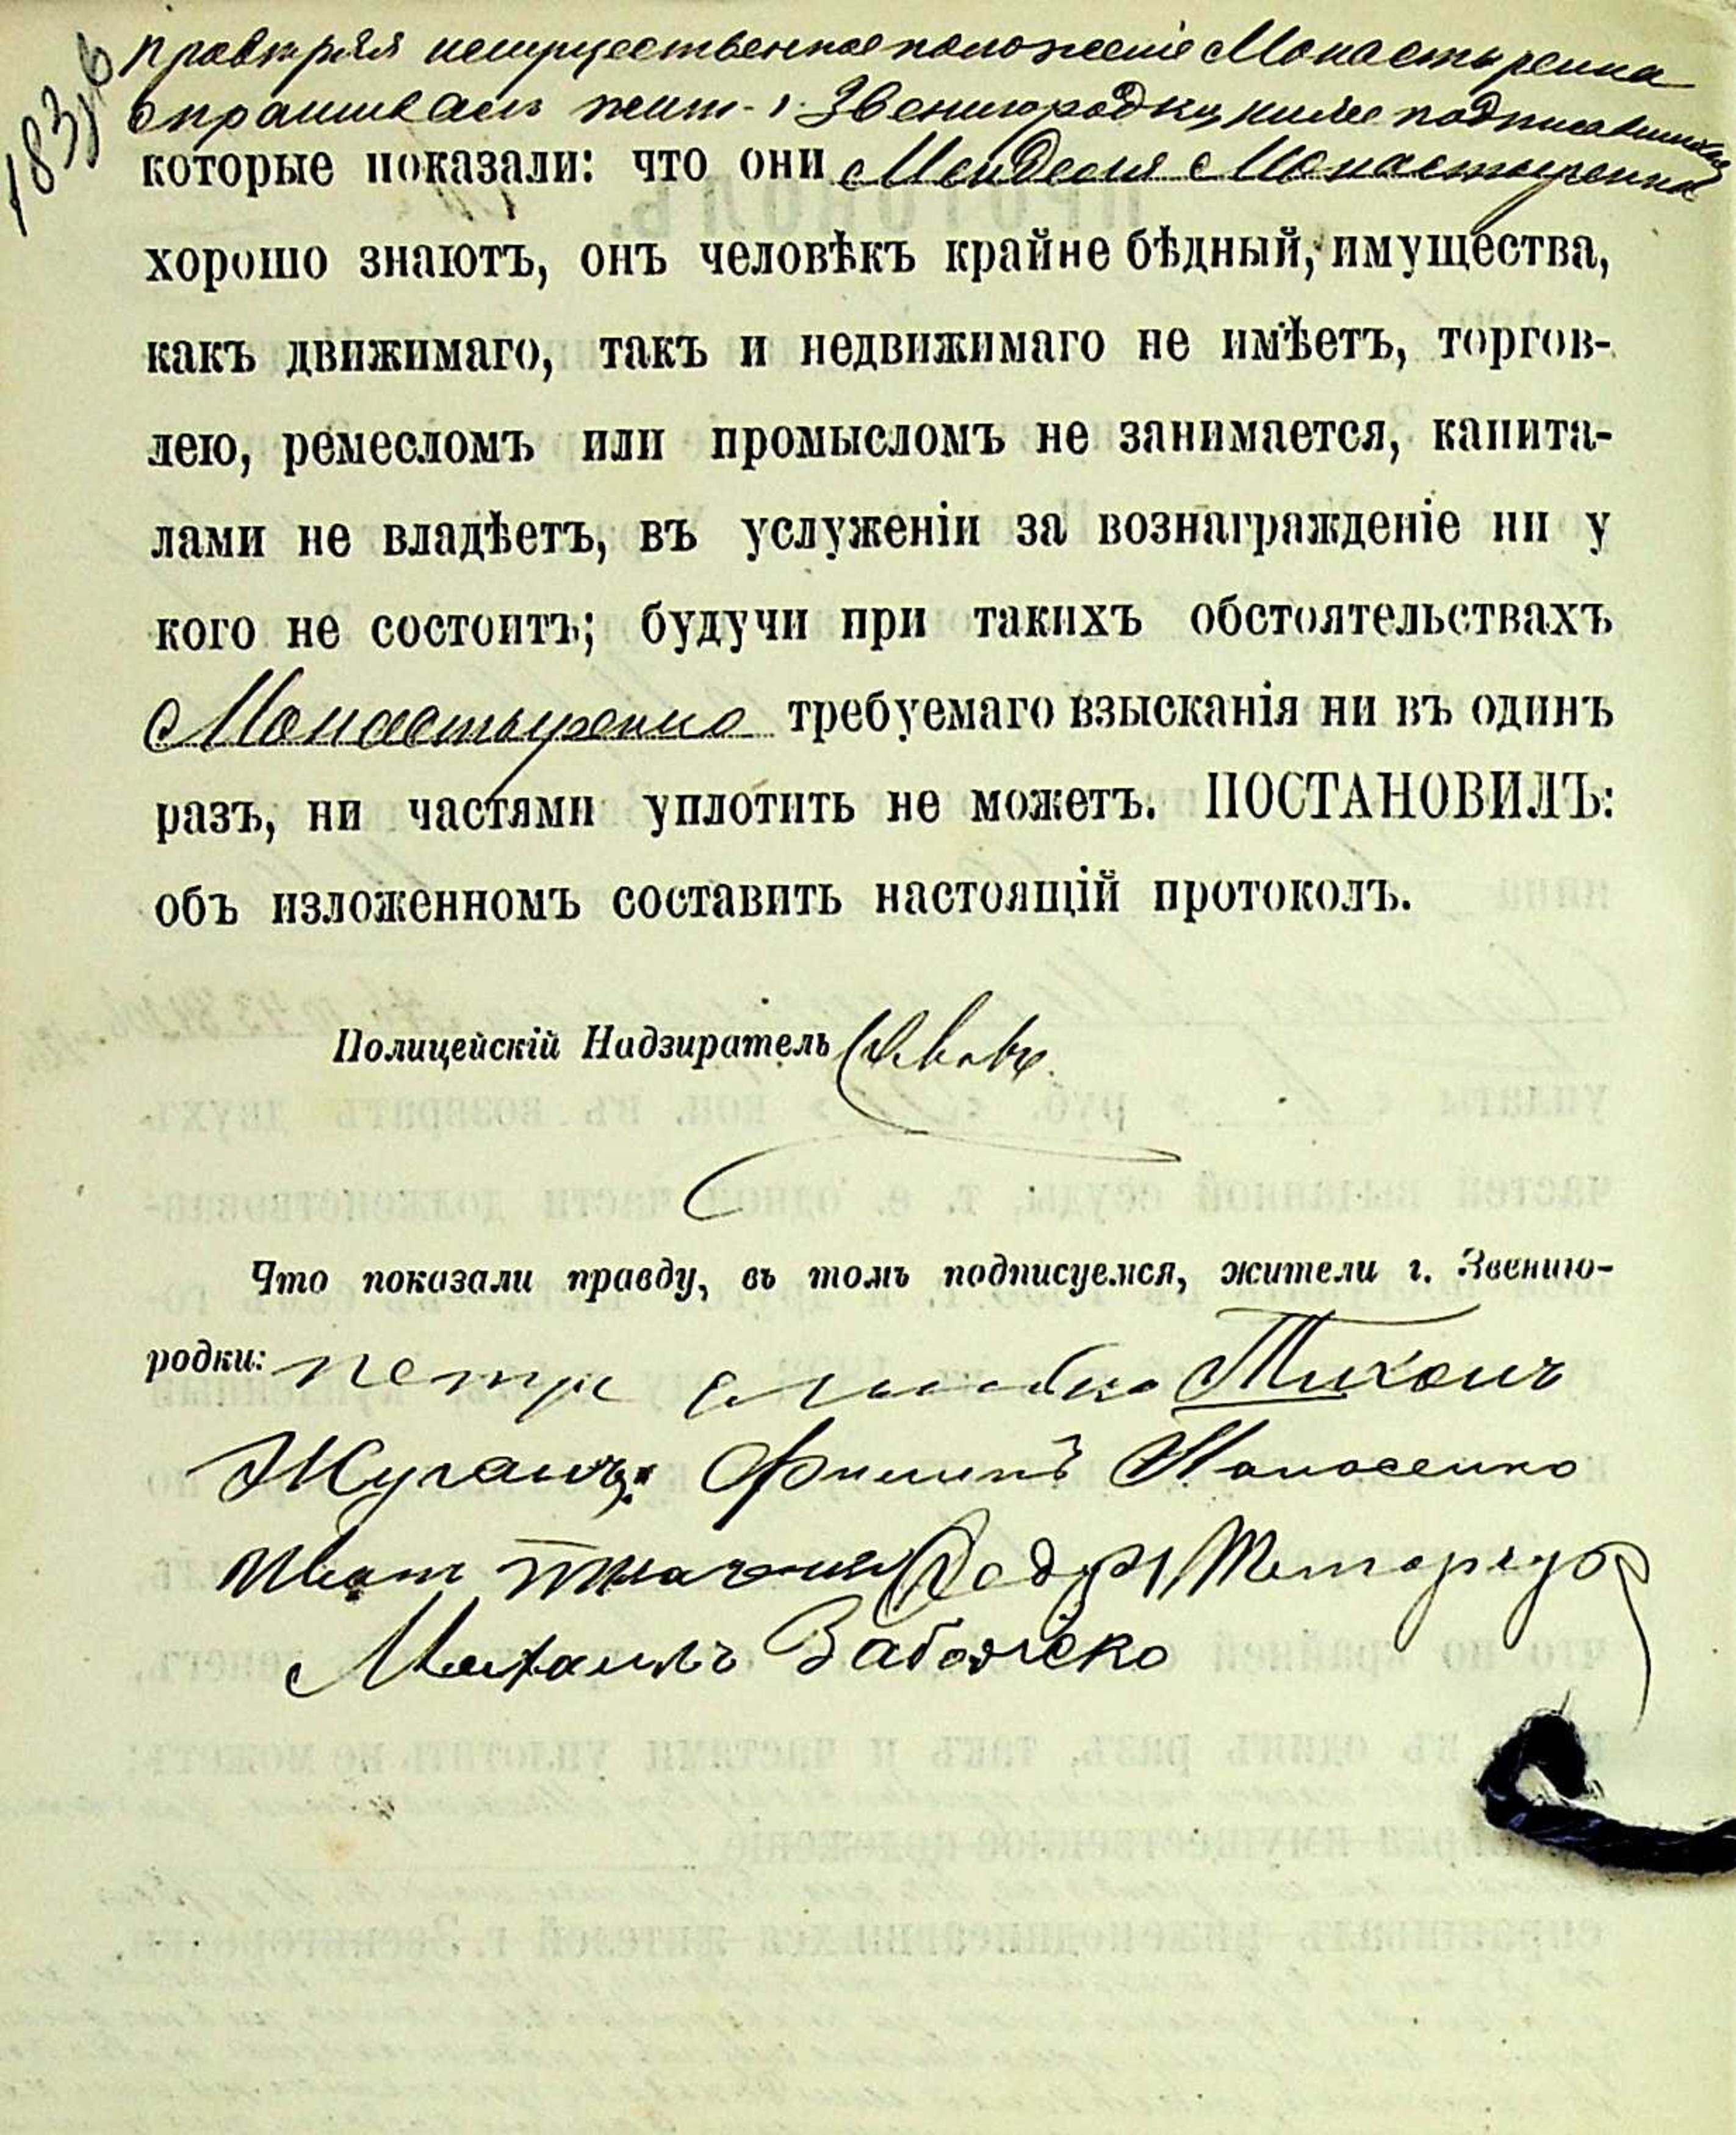 183 об
провѣряя имущественное положеніе Монастыренка
опрашивалъ жит. г. Звенигородки, ниже подписавшихся
которые показали: что они Менделя Монастыренка
хорошо знаютъ, онъ человѣкъ крайне бѣдный, имущества,
какъ движимаго, такъ и недвижимаго не имѣетъ, торгов-
лею, ремесломъ или промысломъ не занимается, капита-
лами не владѣетъ, въ услуженіи за вознагражденіе ни у
кого не состоитъ; будучи при такихъ обстоятельствахъ
Монастыренко требуемаго взысканія ни въ одинъ
разъ, ни частями уплотить не можетъ. ПОСТАНОВИЛЪ:
объ изложенномъ составить настоящій протоколъ.
Полицейскій Надзиратель
Что показали правду, въ томъ подписуемся, жители г. Звениго-
родки: Петръ Тихонъ
Жуганъ Филипъ
Иванъ
Михаилъ